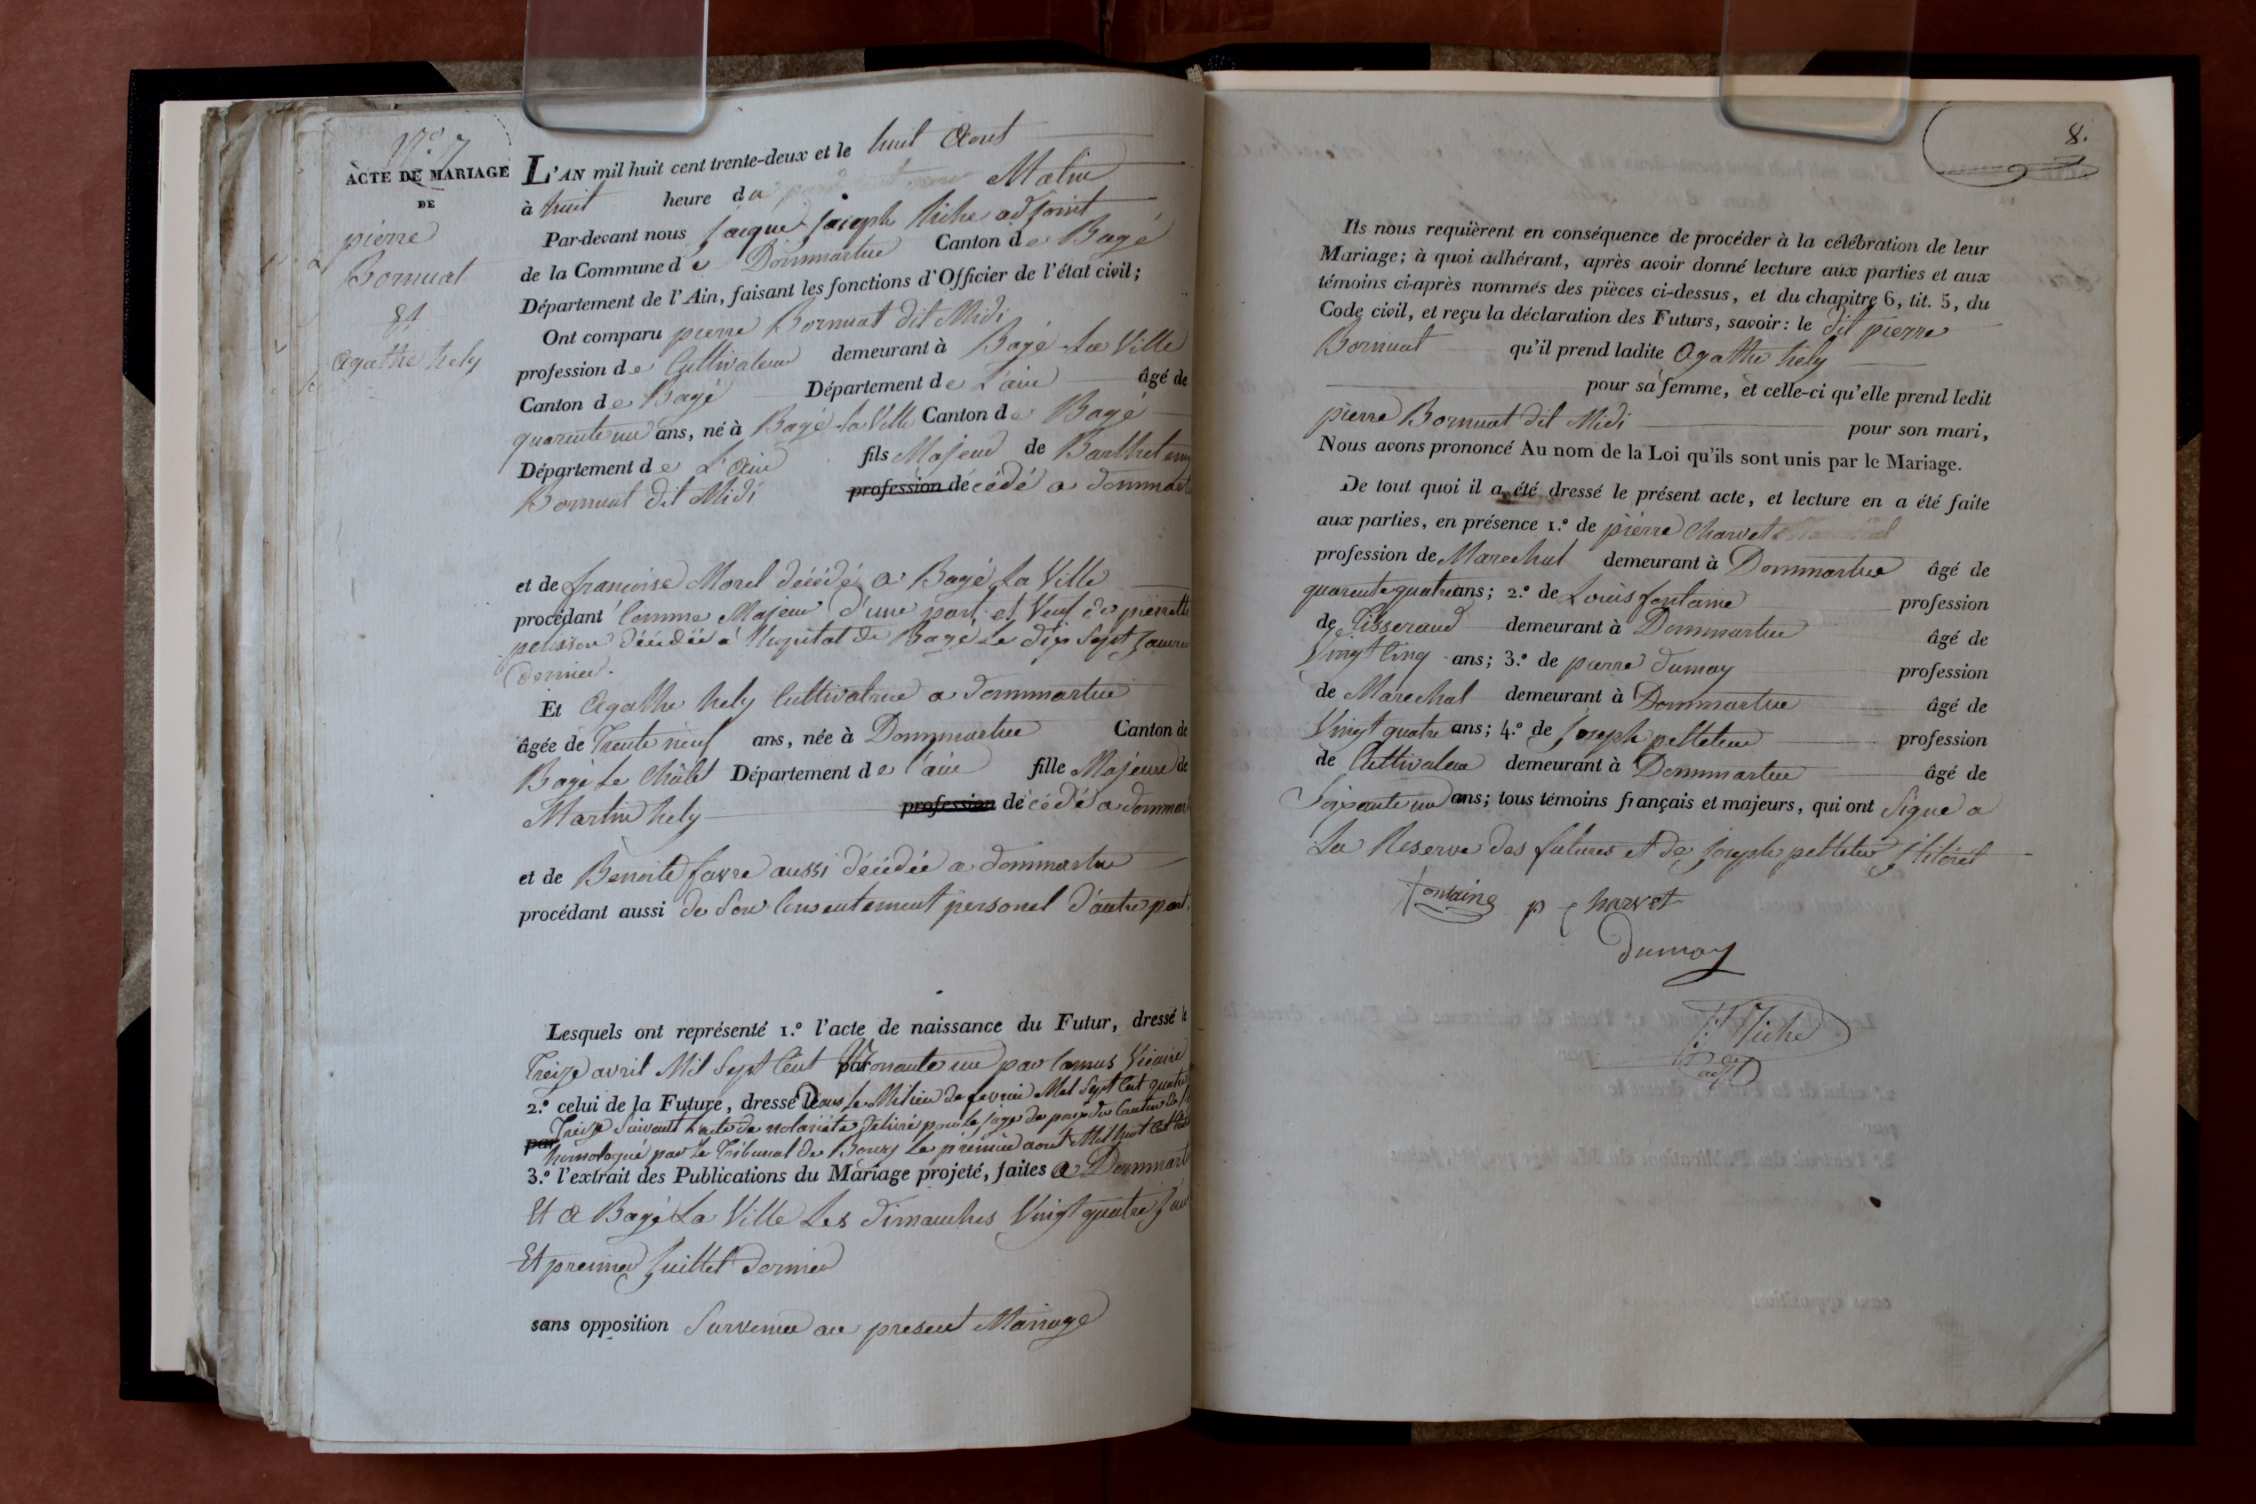 N.° 7
ACTE DE MARIAGE
DE
pierre
Bornuat
Et
Agathe hely
L'AN mil huit cent trente-deux et le huit Aout
à huit heure du Matin
Par-devant nous Jacque Joseph Tiche adjoint
de la Commune de Dommartin Canton de Bagé
Département de l'Ain, faisant les fonctions d'Officier de l'état civil;
Ont comparu pierre Bornuat dit Midi
profession de Cultivateur demeurant à Bagé La Ville
Canton de Bagé Département de L'ain âgé de
quarente un ans, né à Bagé la Ville Canton de Bagé
Département de L'Ain fils Majeur de Barthelemy
Bornuat dit Midi profession décédé a dommart
et de francoise Morel décédé a Bagé La Ville
procédant Comme Majeur d'une part et Veuf de pierrette
pelisson décédée a l'hopital de Bagé Le dix Sept Janvier
dernier.
Et Agathe hely Cultivatrice a dommartin
âgée de Trente neuf ans, née à Dommartin Canton de
Bagé Le Châtel Département de l'ain fille Majeure de
Martin hely profession décédé a dommart
et de Benoite favre aussi décédée a dommartin
procédant aussi de Son Consentement personel d'autre part.
Lesquels ont représenté 1.° l'acte de naissance du Futur, dressé le
Treize avril Mil Sept Cent Nonante un par Camus Vicaire
2.° celui de la Future, dressé Dans Le Milieu de fevrier Mil Sept Cent quatre
Treize Suivant L'acte de notoriété délivré par Le juge de paix du Canton de
par homologué par Le Tribunal de Bourg Le premier aout Mil huit Cent
3.° l'extrait des Publications du Mariage projeté, faites a Dommart
Et a Bagé La Ville Les dimanches Vingt quatre Juin
Et premier Juillet dernier
sans opposition Survenue au present Mariage
8.
Ils nous requièrent en conséquence de procéder à la célébration de leur
Mariage; à quoi adhérant, après avoir donné lecture aux parties et aux
témoins ci-après nommés des pièces ci-dessus, et du chapitre 6, tit. 5, du
Code civil, et reçu la déclaration des Futurs, savoir: le dit pierre
Bornuat qu'il prend ladite Agathe hely
pour sa femme, et celle-ci qu'elle prend ledit
pierre Bornuat dit Midi pour son mari,
Nous avons prononcé Au nom de la Loi qu'ils sont unis par le Mariage.
De tout quoi il a été dressé le présent acte, et lecture en a été faite
aux parties, en présence 1.° de pierre Charvet
profession de Marechal demeurant à Dommartin âgé de
quarente quatre ans; 2.° de Louis fontaine profession
de Tisserand demeurant à Dommartin âgé de
Vingt Cinq ans; 3.° de pierre dumay profession
de Marechal demeurant à Dommartin âgé de
Vingt quatre ans; 4.° de Joseph pelletier profession
de Cultivateur demeurant à Dommartin âgé de
Soixante un ans; tous témoins français et majeurs, qui ont Signe a
La Reserve des futures et de Joseph pelletier
fontaine p charvet
dumay
Tiche
adjt